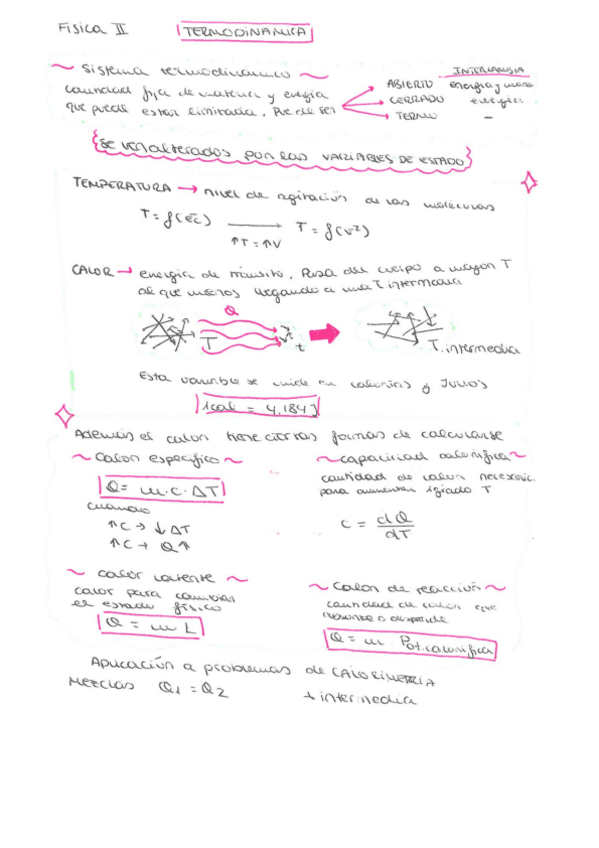 FISICA II TERMODINAMICA
~ Sistema termodinamico ~ INTERCAMBIA
cantidad fija de materia y energia ABIERTO energia y materia
que puede estar limitada. Puede ser CERRADO energia
TERMO –
{Se ven alterados por las VARIABLES DE ESTADO}
TEMPERATURA → nivel de agitación de las moleculas
T = f(Ec) → T = f(v²)
↑T = ↑V
CALOR → energia de transito. Pasa del cuerpo a mayor T
al que menos llegando a una T intermedia
Q
T t
T. intermedia
Esta variable se mide en calorias y Julios
1cal = 4,184J
Además el calor tiene ciertas formas de calcularse
~ Calor especifico ~ ~ capacidad calorifica ~
cantidad de calor necesaria
Q = m.c.ΔT para aumentar 1 grado T
cuanto
↑C → ↓ΔT C = dQ/dT
↑C → Q↑
~ calor latente ~ ~ Calor de reacción ~
calor para cambiar cantidad de calor que
el estado físico absorbe o desprende
Q = m L Q = m Pot.calorifica
Aplicación a problemas de CALORIMETRIA
MEZCLAS Q1 = Q2 t intermedia